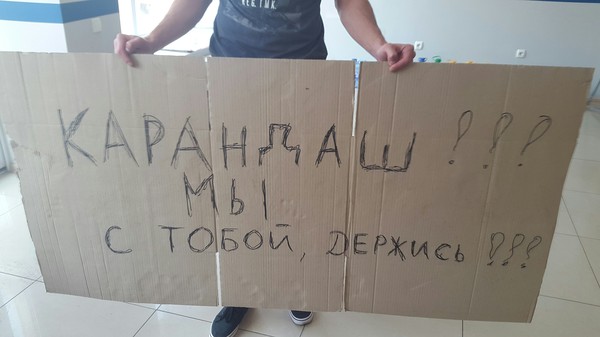 КАРАНДАШ!!!
МЫ
С ТОБОЙ, ДЕРЖИСЬ!!!